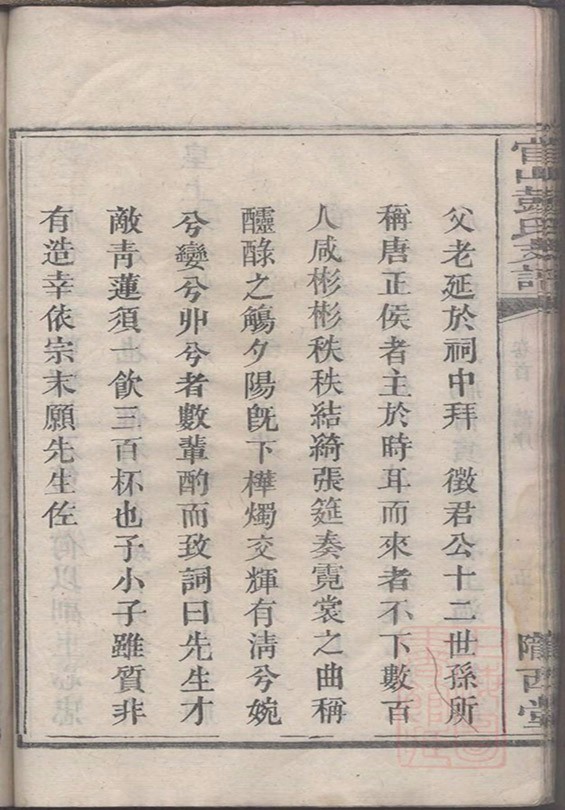 父老延於祠中拜　徵君公十二世孫所
稱唐正侯者主於時耳而來者不下數百
人咸彬彬秩秩結綺張筵奏霓裳之曲稱
醽醁之觴夕陽旣下樺燭交輝有淸兮婉
兮孌兮丱兮者數輩酌而致詞曰先生才
敵靑蓮須一飮三百杯也子小子雖質非
有造幸依宗末願先生佐
彭氏支譜
隴西堂